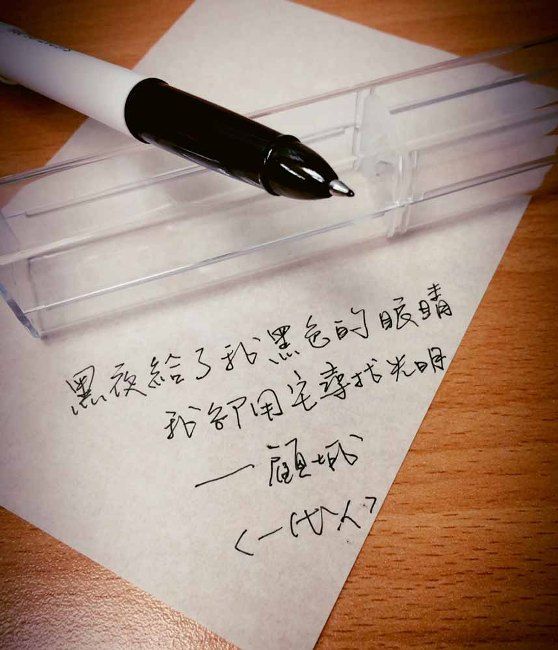 黑夜給了我黑色的眼睛
我卻用它尋找光明
—顧城
<一代人>